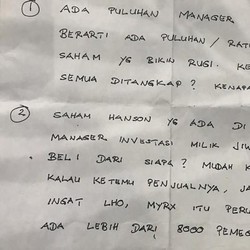 ① ADA PULUHAN MANAGER
BERARTI ADA PULUHAN / RAT
SAHAM YG BIKIN RUGI. KE
SEMUA DITANGKAP? KENAPA
② SAHAM HANSON YG ADA DI
MANAGER INVESTASI MILIK JIW
BELI DARI SIAPA? MUDAH K
KALAU KETEMU PENJUALNYA, JA
INGAT LHO, MYRX ITU PERU
ADA LEBIH DARI 8000 PEME